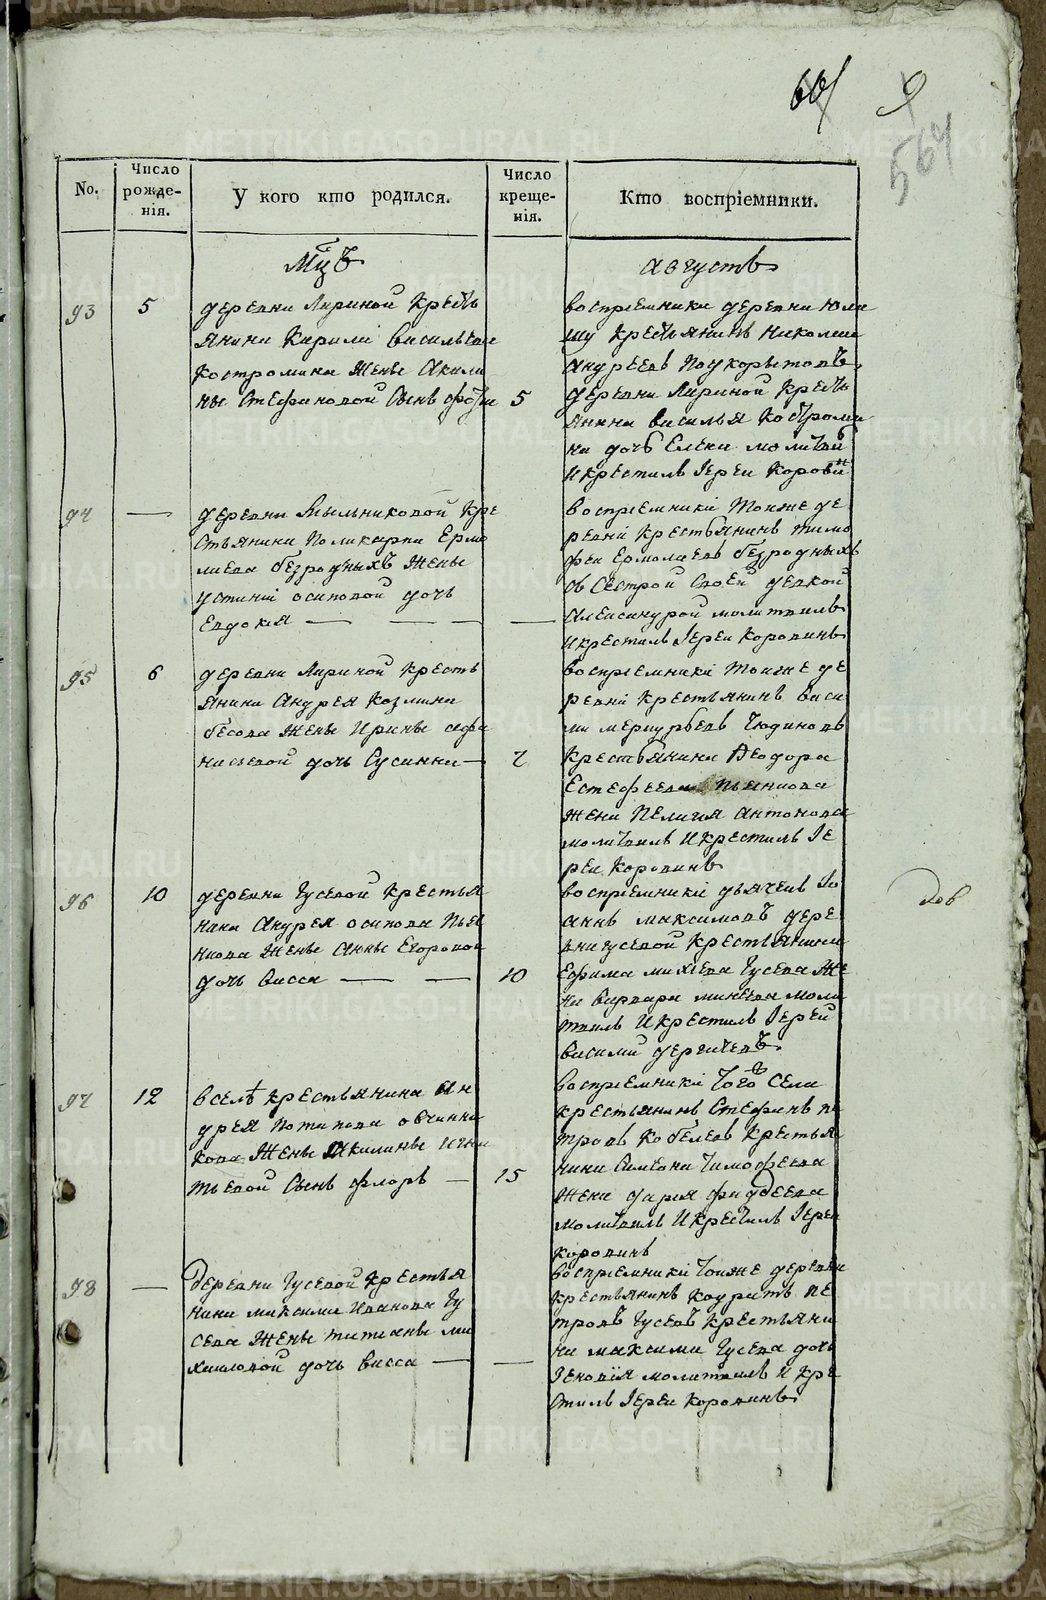 601 9
564
No.
Число рожденія.
У кого кто родился.
Число крещенія.
Кто воспріемники.
Мцъ
августъ
93 5
деревни Лариной кресть
янина Карпа васильева
костромина жены Акили
ны Стефановой сынъ 5
воспріемники деревни
крестьянинъ Николай
андреевъ
деревни Лариной кресть
янина василья костроми
на дочь молитвилъ
и крестилъ Іереи Коровинъ
94 —
деревни Мыльниковой кре
стьянина Поликарпа Ермо
лаева безродныхъ жены
устиніи осиповой дочь
Евдокія — — — —
воспріемники тоиже де
ревни крестьянинъ тимо
феи Ермолаевъ безродныхъ
съ сестрой своей девкой
александрой молитвилъ
и крестилъ Іереи Коровинъ
95 6
деревни Лариной кресть
янина Андрея Козмина
жены Ирины афа
насьевой дочь Сусанна — 7
воспріемники тоиже де
ревни крестьянинъ васи
леи меркурьевъ Чюдиновъ
крестьянина Феодора
Естефеева пьянкова
жена Пелагия Антонова
молитвилъ и крестилъ Іе
реи Коровинъ
96 10
деревни Гусевой крестья
нина Андрея осипова Пья
нкова жены Анны Егоровой
дочь васса — — 10
воспріемники дьячекъ Іо
аннъ максимовъ дере
вни гусевой крестьянина
Ефима михеева Гусева же
на варвара минеева моли
твилъ и крестилъ Іерей
василий дергачевъ
97 12
в селѣ крестьянина Ан
дрея потапова овчинни
кова жены Акилины игна
тьевой сынъ флоръ — 15
воспріемники того села
крестьянинъ Стефанъ пе
тровъ Кобелевъ крестья
нина Симеона Тимофеева
жена дарья фаддеева
молитвилъ и крестилъ Іереи
коровинъ
98 —
Деревни Гусевой крестья
нина максима Иванова Гу
сева жены татианы ми
хаиловой дочь васса — —
воспріемники тоиже деревни
крестьянинъ Кодратъ пе
тровъ Гусевъ крестьяни
на максима Гусева дочь
Зеновия молитвилъ и кре
стилъ Іереи Коровинъ
METRIKI.GASO-URAL.RU